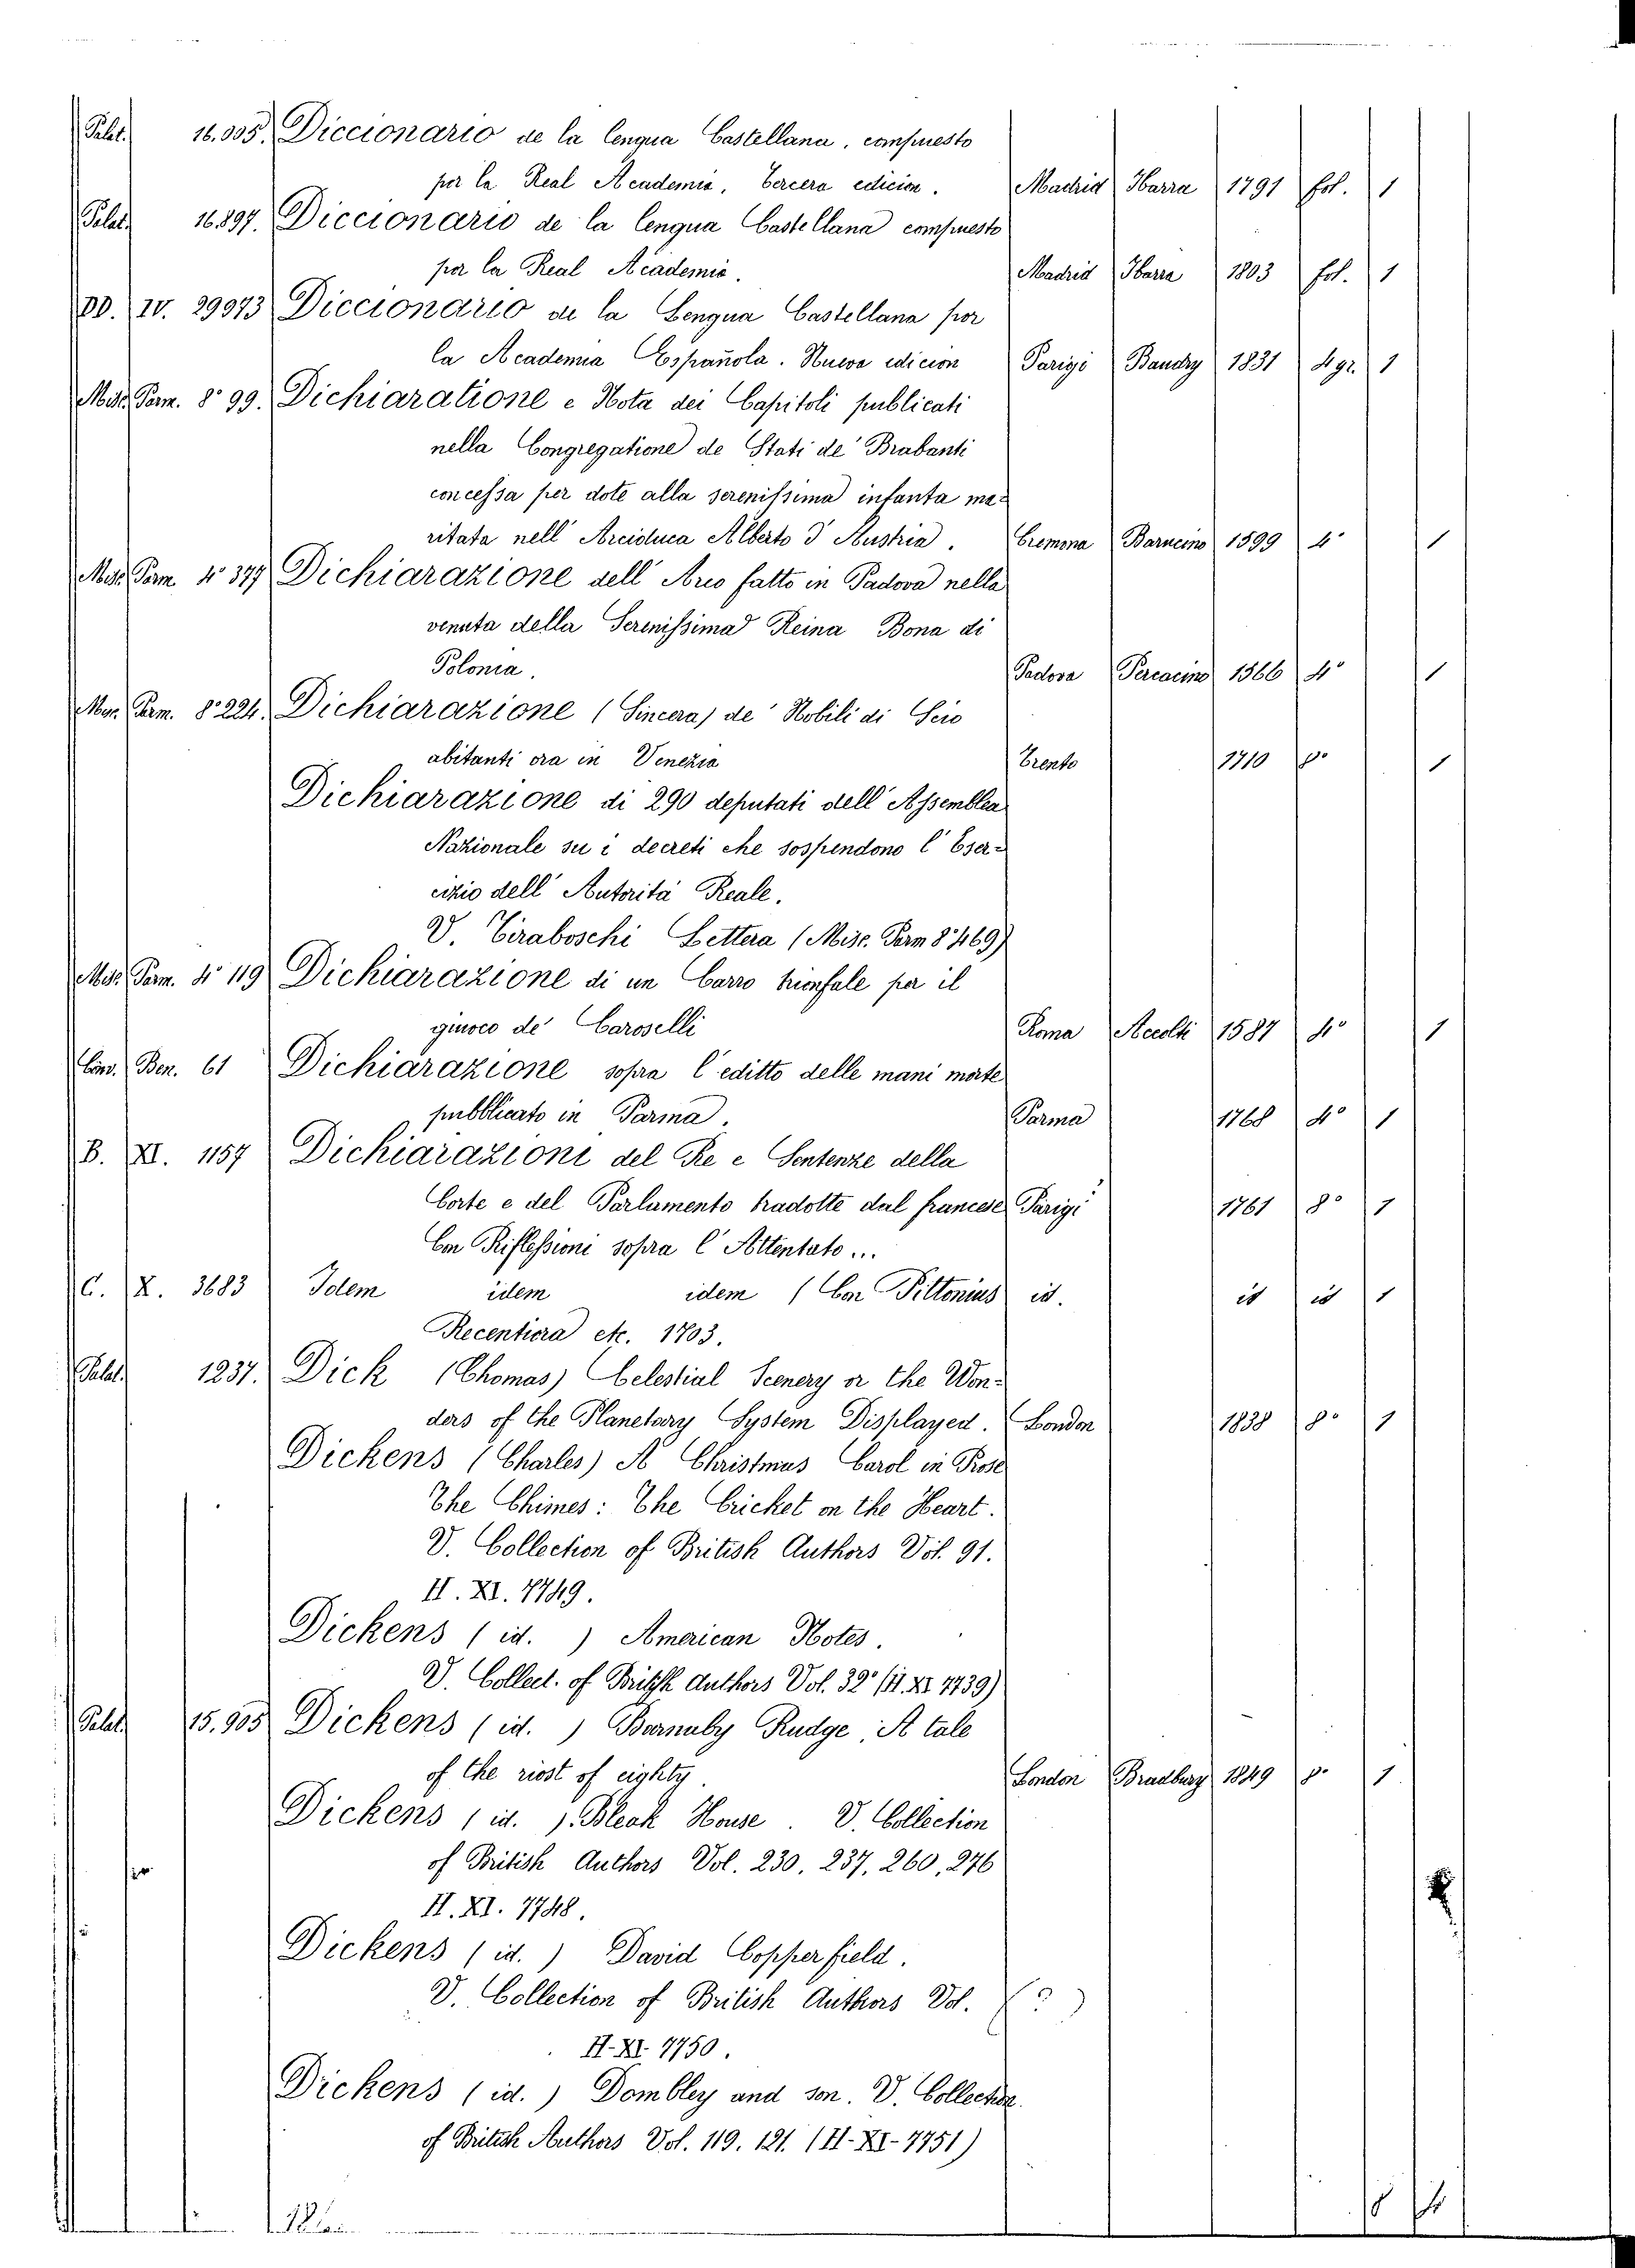 Palat. 16.005. Diccionario de la lengua Castellana, compuesto
por la Real Academia, tercera edicion. Madrid Ibarra 1791 fol. 1
Palat. 16.897. Diccionario de la lengua Castellana compuesto
por la Real Academia. Madrid Ibarra 1803 fol. 1
DD. IV. 29973 Diccionario de la Lengua Castellana por
la Academia Española. Nueva edicion Parigi Baudry 1831 4 gr. 1
Misc. Parm. 8° 99. Dichiaratione e Nota dei Capitoli publicati
nella Congregatione de Stati de' Brabanti
concessa per dote alla serenissima infanta ma-
ritata nell' Arciduca Alberto d'Austria. Cremona Barucino 1599 4° 1
Misc. Parm. 4° 377 Dichiarazione dell' Arco fatto in Padova nella
venuta della Serenissima Reina Bona di
Polonia. Padova Percacino 1566 4° 1
Misc. Parm. 8° 224. Dichiarazione (Sincera) de' Nobili di Scio
abitanti ora in Venezia Trento 1710 8° 1
Dichiarazione di 290 deputati dell' Assemblea
Nazionale su i decreti che sospendono l'Eser-
cizio dell' Autorità Reale.
V. Tiraboschi Lettera (Misc. Parm 8° 469)
Misc. Parm. 4° 119 Dichiarazione di un Carro trionfale per il
giuoco de' Caroselli Roma Accolti 1587 4° 1
Conv. Ben. 61 Dichiarazione sopra l'editto delle mani morte
pubblicato in Parma. Parma 1768 4° 1
B. XI. 1157 Dichiarazioni del Re e Sentenze della
Corte e del Parlamento tradotte dal francese Parigi 1761 8° 1
Con Riflessioni sopra l'Attentato ...
C. X. 3683 Idem idem idem (Con Pittonius id. id id 1
Recentiora etc. 1703.
Palat. 1237. Dick (Thomas) Celestial Scenery or the Won-
ders of the Planetary System Displayed. London 1838 8° 1
Dickens (Charles) A Christmas Carol in Prose
The Chimes: The Cricket on the Heart.
V. Collection of British Authors Vol. 91.
II. XI. 7749.
Dickens (id.) American Notes.
V. Collect. of British Authors Vol. 32° (II. XI 7739)
Palat. 15.905 Dickens (id.) Barnaby Rudge, A tale
of the riost of eighty. London Bradbury 1849 8° 1
Dickens (id.). Bleak House. V. Collection
of British Authors Vol. 230. 237. 260, 276
II. XI. 7748.
Dickens (id.) David Copperfield.
V. Collection of British Authors Vol. (?)
II-XI. 7750.
Dickens (id.) Dombley and son. V. Collection
of British Authors Vol. 119. 121. (II-XI-7751)